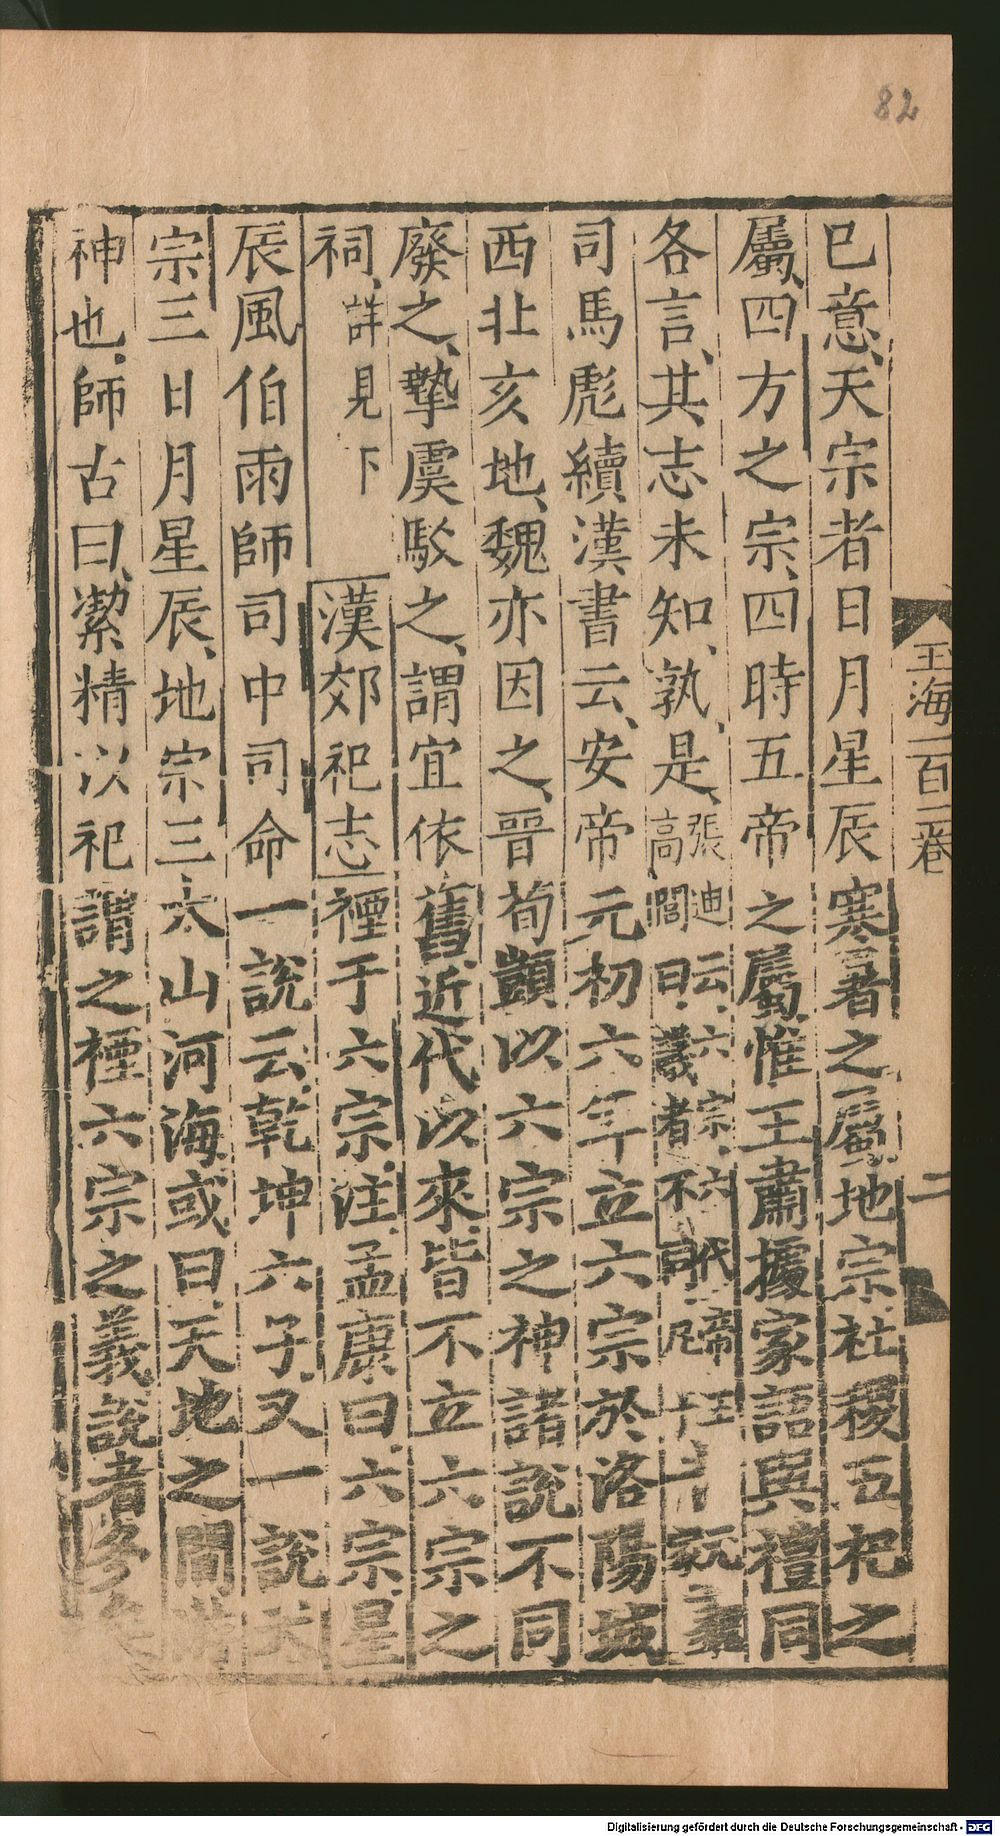 82
玉海一百二卷
二
已意天宗者日月星辰寒暑之屬地宗社稷五祀之
屬四方之宗四時五帝之屬惟王肅據家語與禮同
各言其志未知孰是張迪云六宗六代帝王
高閭曰議者不同凡十一家
司馬彪續漢書云安帝元初六年立六宗於洛陽城
西北亥地魏亦因之晉荀顗以六宗之神諸說不同
廢之摯虞駁之謂宜依舊近代以來皆不立六宗之
祠詳見下 漢郊祀志禋于六宗注孟康曰六宗星
辰風伯雨師司中司命一說云乾坤六子又一說天
宗三日月星辰地宗三太山河海或曰天地之間
神也師古曰潔精以祀謂之禋六宗之義說者多
Digitalisierung gefördert durch die Deutsche Forschungsgemeinschaft - DFG